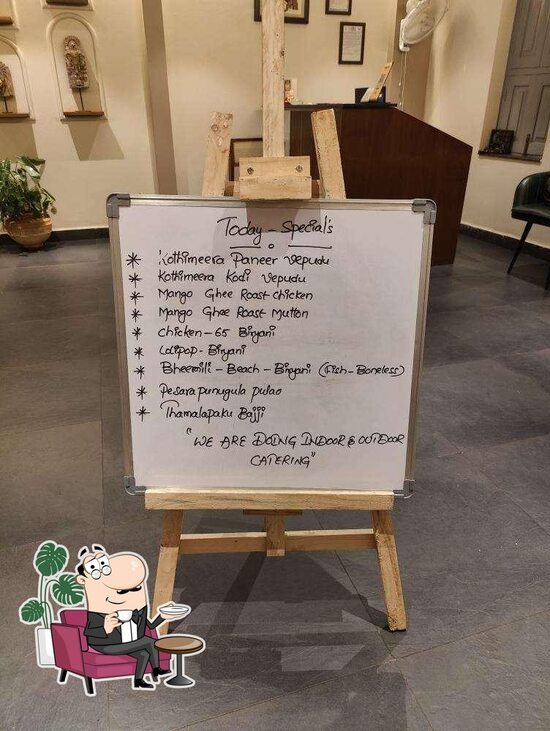 Today - Special's
* Kothimeera Paneer Vepudu
* Kothimeera Kodi Vepudu
* Mango Ghee Roast chicken
* Mango Ghee Roast Mutton
* Chicken-65 Biryani
* Lolipop-Biryani
* Bheemili-Beach-Biryani (Fish-Boneless)
* Pesara punugula pulao
* Thamalapaku Bajji
"WE ARE DOING INDOOR & OUTDOOR
CATERING"